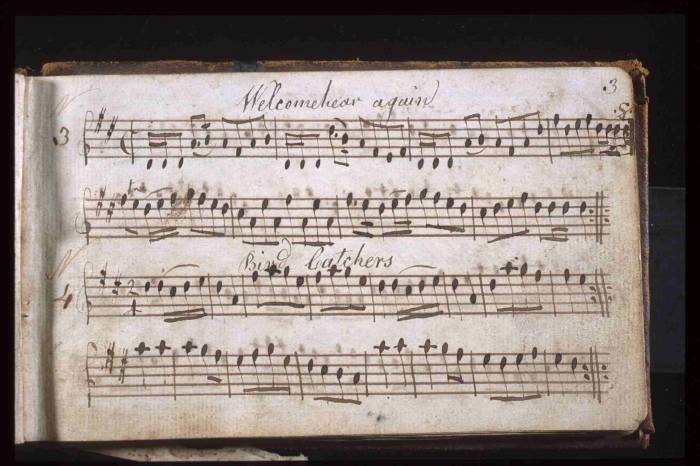 .3
Welcomehear again
3
Bird Catchers
N
4
2
4